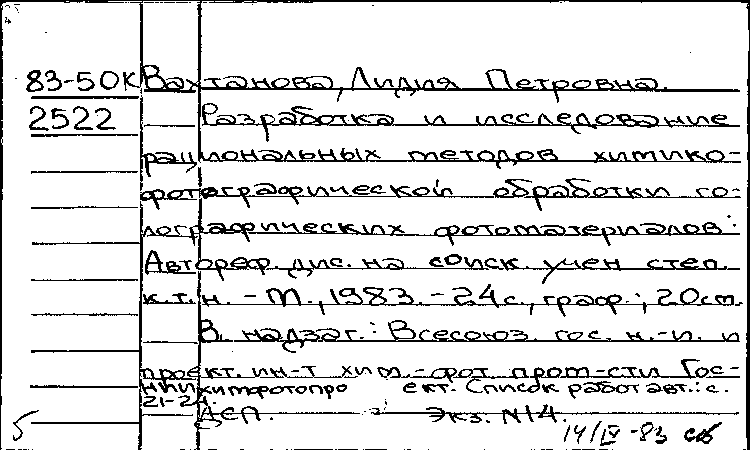 83-50К Вахтанова, Лидия Петровна.
2522 Разработка и исследование
рациональных методов химико-
фотографической обработки го-
лографических фотоматериалов:
Автореф. дис. на соиск. учен степ.
к.т.н. - М., 1983. - 24с., граф.; 20см.
В. надзаг.: Всесоюз. гос. н.-и. и
проект. ин-т хим.-фот. пром-сти Гос-
НИИхимфотопро ект. Список работ авт.: с.
21-24.
ДСП. Экз. №14.
5 14/IV-83